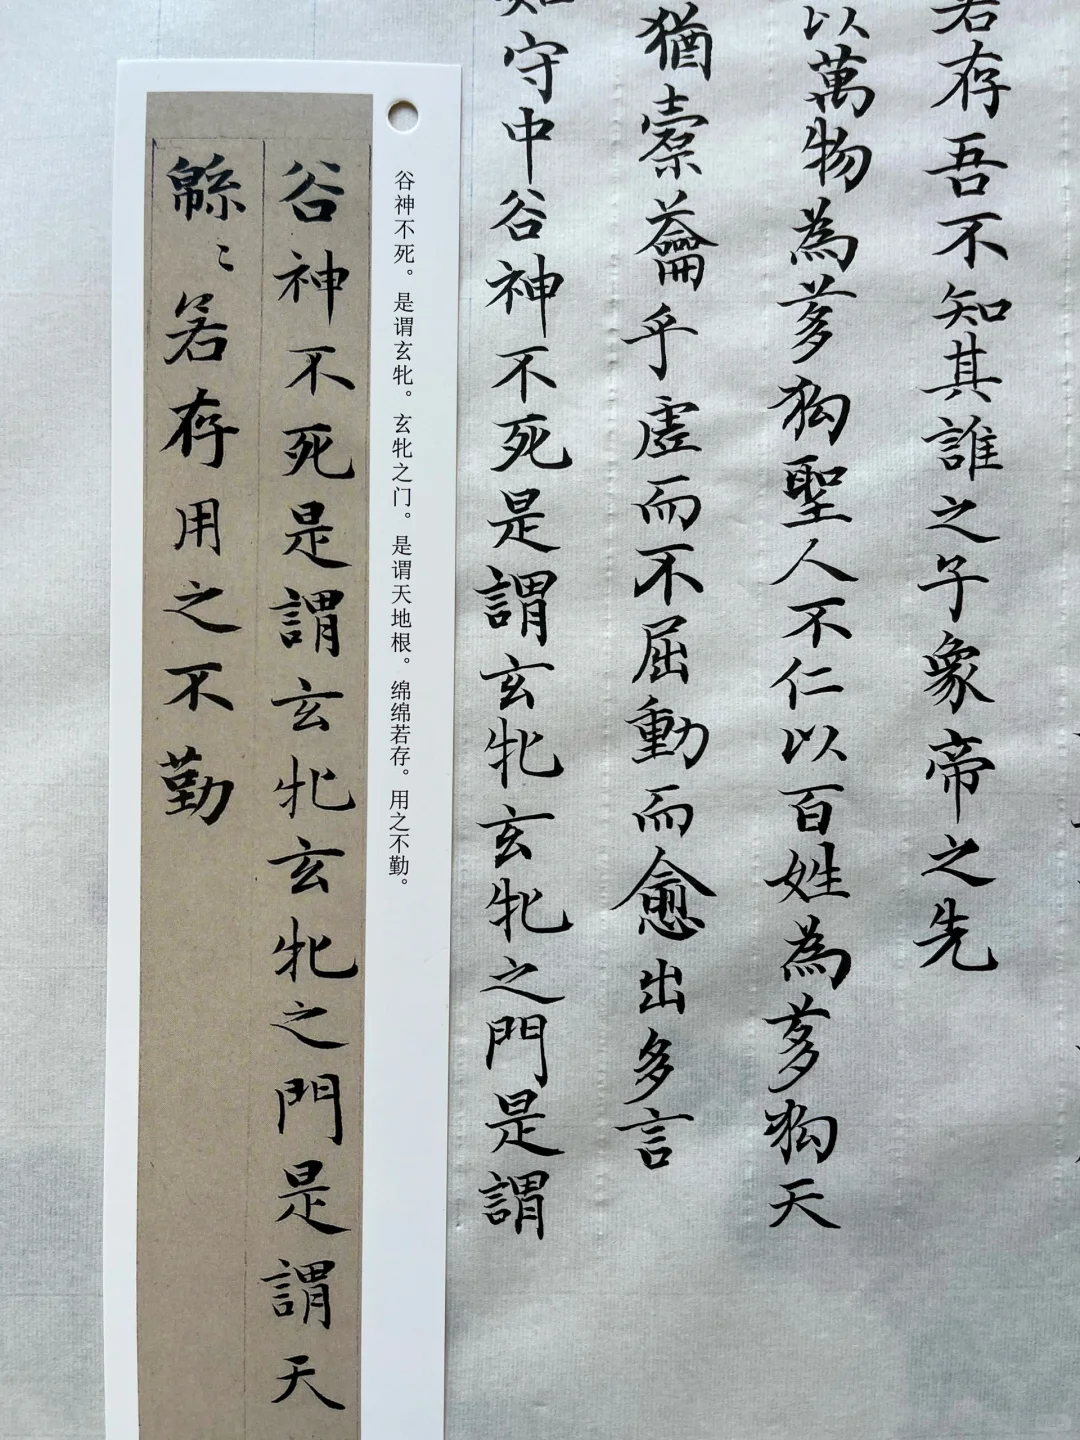 若存吾不知其誰之子象帝之先
以萬物為芻狗聖人不仁以百姓為芻狗天
猶橐蘥乎虛而不屈動而愈出多言
如守中谷神不死是謂玄牝玄牝之門是謂
谷神不死。是谓玄牝。玄牝之门。是谓天地根。绵绵若存。用之不勤。
谷神不死是謂玄牝玄牝之門是謂天
緜〻若存用之不勤